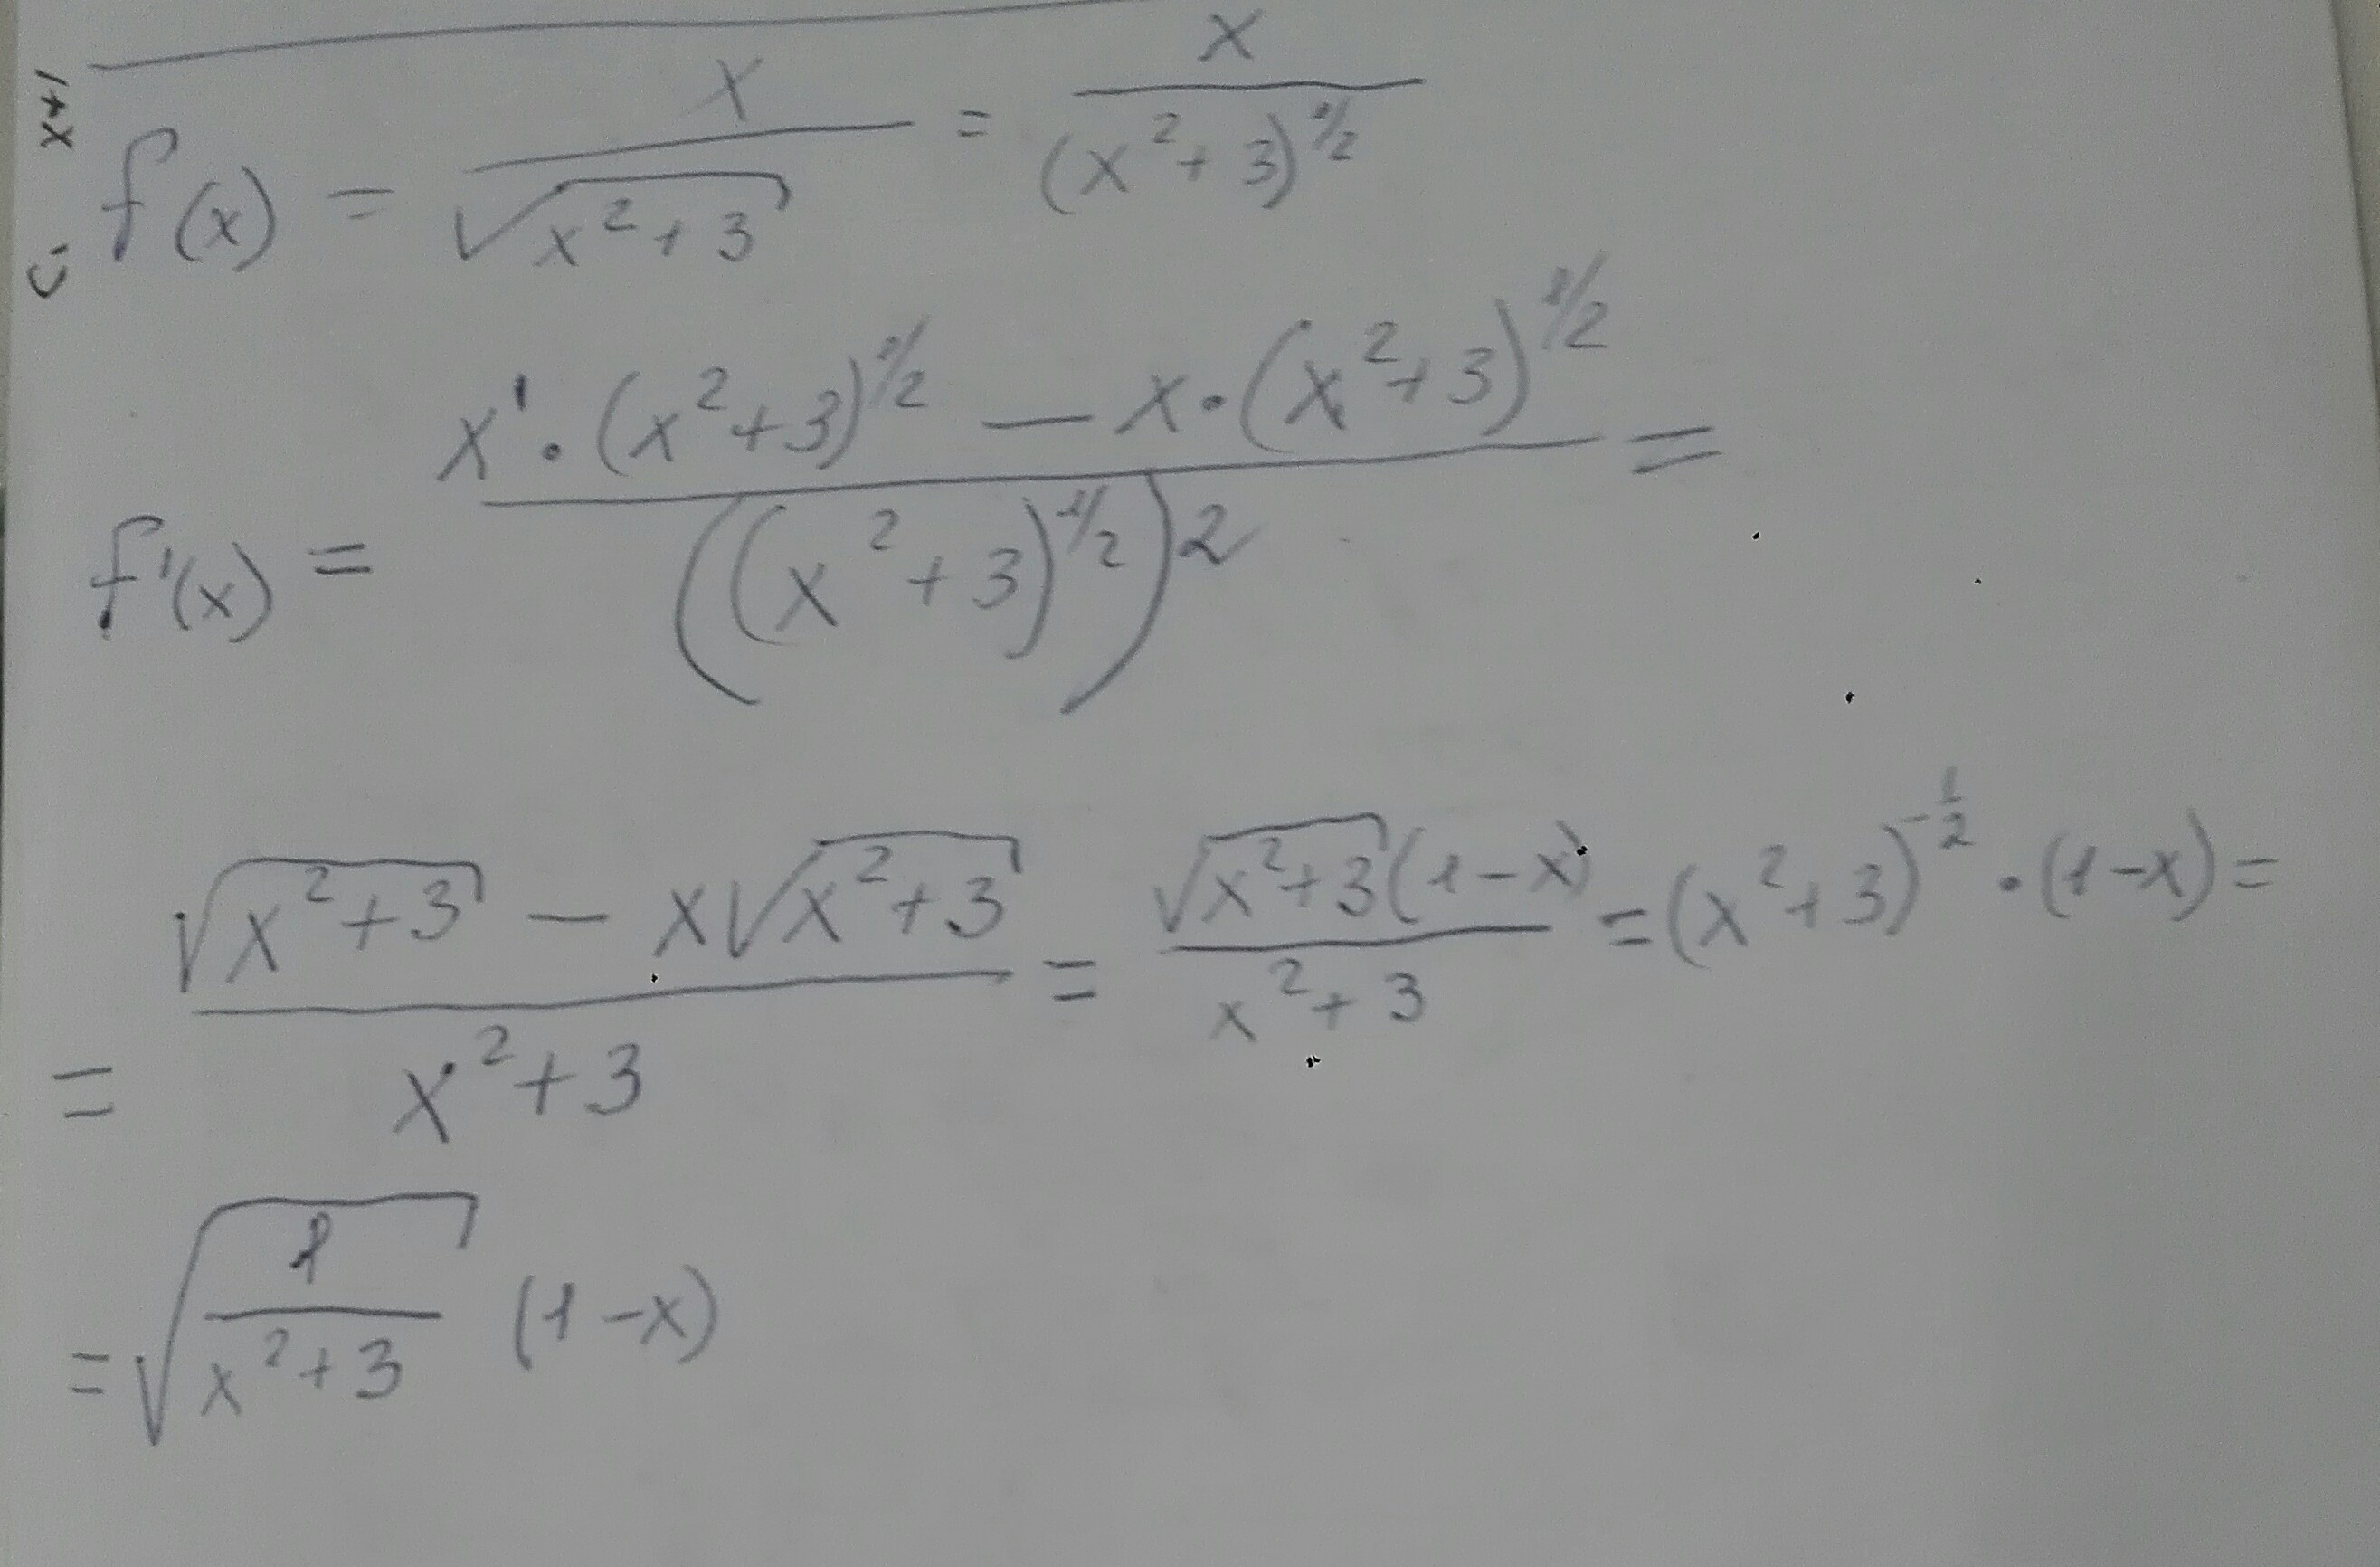 x+1
f(x) = x / √(x²+3) = x / (x²+3)^1/2
f'(x) = (x' · (x²+3)^1/2 — x · (x²+3)^1/2) / ((x²+3)^1/2)² =
= (√(x²+3) — x√(x²+3)) / (x²+3) = √(x²+3) (1-x) / (x²+3) = (x²+3)^-1/2 · (1-x) =
= √(1 / (x²+3)) (1-x)